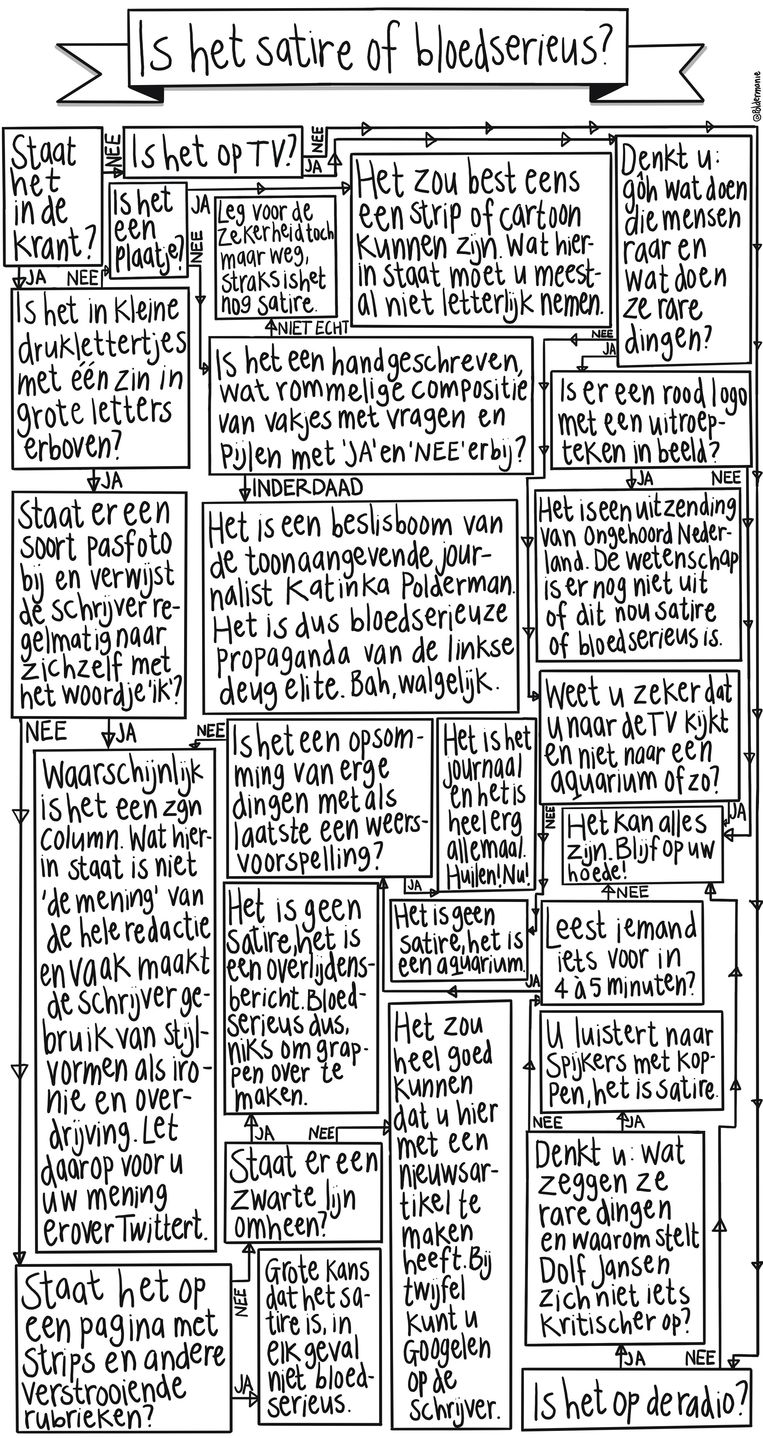 Is het satire of bloedserieus?
@Poldermanie
Staat
het
in de
krant?
NEE
Is het op TV?
NEE
JA
Denkt u:
gôh wat doen
die mensen
raar en
wat doen
ze rare
dingen?
Is het
een
plaatje?
JA
NEE
Leg voor de
zekerheid toch
maar weg,
straks is het
nog satire.
Het zou best eens
een strip of cartoon
kunnen zijn. Wat hier-
in staat moet u meest-
al niet letterlijk nemen.
JA
NEE
NIET ECHT
NEE
JA
Is het in kleine
druklettertjes
met één zin in
grote letters
erboven?
Is het een handgeschreven,
wat rommelige compositie
van vakjes met vragen en
pijlen met 'JA' en 'NEE' erbij?
Is er een rood logo
met een uitroep-
teken in beeld?
JA
INDERDAAD
JA
NEE
Staat er een
soort pasfoto
bij en verwijst
de schrijver re-
gelmatig naar
zichzelf met
het woordje 'ik'?
Het is een beslisboom van
de toonaangevende jour-
nalist Katinka Polderman.
Het is dus bloedserieuze
propaganda van de linkse
deugelite. Bah, walgelijk.
Het is een uitzending
van Ongehoord Neder-
land. De wetenschap
is er nog niet uit
of dit nou satire
of bloedserieus is.
NEE
JA
NEE
Weet u zeker dat
u naar de TV kijkt
en niet naar een
aquarium of zo?
NEE
JA
Waarschijnlijk
is het een zgn
column. Wat hier-
in staat is niet
'de mening' van
de hele redactie
en vaak maakt
de schrijver ge-
bruik van stijl-
vormen als iro-
nie en over-
drijving. Let
daarop voor u
uw mening
erover Twittert.
Is het een opsom-
ming van erge
dingen met als
laatste een weers-
voorspelling?
JA
Het is het
journaal
en het is
heel erg
allemaal.
Huilen! Nu!
Het kan alles
zijn. Blijf op uw
hoede!
NEE
Het is geen
satire, het is
een overlijdens-
bericht. Bloed-
serieus dus,
niks om grap-
pen over te
maken.
Het is geen
satire, het is
een aquarium
Leest iemand
iets voor in
4 à 5 minuten?
JA
Het zou
heel goed
kunnen
dat u hier
met een
nieuwsar-
tikel te
maken
heeft. Bij
twijfel
kunt u
Googelen
op de
schrijver.
U luistert naar
Spijkers met Kop-
pen, het is satire.
NEE
JA
JA
NEE
Staat er een
zwarte lijn
omheen?
Denkt u: wat
zeggen ze
rare dingen
en waarom stelt
Dolf Jansen
zich niet iets
kritischer op?
Staat het op
een pagina met
strips en andere
verstrooiende
rubrieken?
NEE
JA
Grote kans
dat het sa-
tire is, in
elk geval
niet bloed-
serieus.
JA
NEE
Is het op de radio?